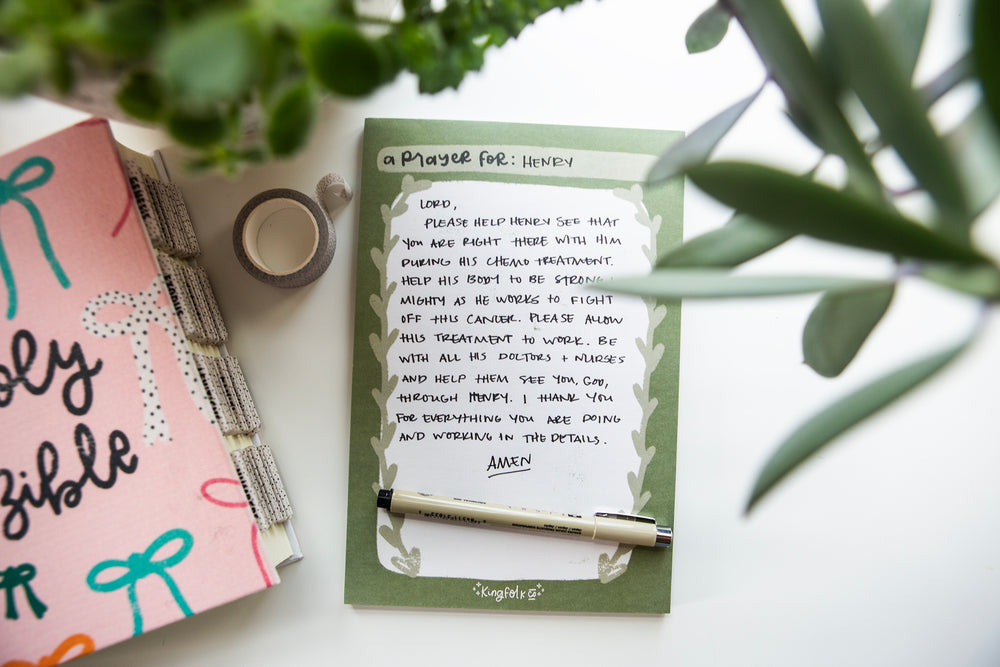 a prayer for: HENRY
LORD,
PLEASE HELP HENRY SEE THAT
YOU ARE RIGHT THERE WITH HIM
DURING HIS CHEMO TREATMENT.
HELP HIS BODY TO BE STRONG
MIGHTY AS HE WORKS TO FIGHT
OFF THIS CANCER. PLEASE ALLOW
THIS TREATMENT TO WORK. BE
WITH ALL HIS DOCTORS + NURSES
AND HELP THEM SEE YOU, GOD,
THROUGH HENRY. I THANK YOU
FOR EVERYTHING YOU ARE DOING
AND WORKING IN THE DETAILS.
AMEN
Kingfolk co
oly
Bible